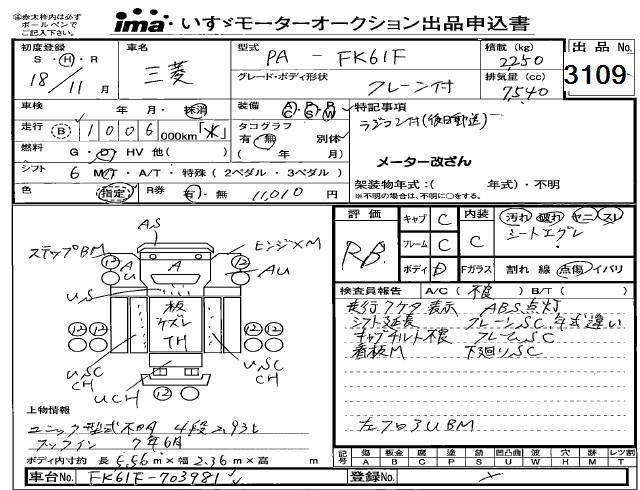 注太枠内は必ず
ボールペンで
ご記入下さい。
ima・いすゞモーターオークション出品申込書
初度登録 S・H・R 18/11月
車名 三菱
型式 PA - FK61F
グレード・ボディ形状 クレーン付
積載(kg) 2250
排気量(cc) 7540
出品No. 3109
車検 年・月・抹消
装備 AC・PS・PW
特記事項
ラジコン付(後日郵送)
走行 B 1006 000km「*」
タコグラフ 有・無 別体 ( 年 月)
メーター改ざん
燃料 G・D・HV 他( )
シフト 6 MT・A/T・特殊(2ペダル・3ペダル)
架装物年式:( 年式)・不明
※不明の場合は、不明に○をする。
色 (指定) R券 有・無 11,010 円
評価 RB
キャブ C
フレーム C
ボディ D
内装 C
汚れ 破れ ヤニ スレ
シートエグレ
Fガラス 割れ 線 点傷 イパリ
AS
ステップBM
エンジ×M
12 12
A A
U
AU
US
板
ケズレ
TH
12 12
USC
CH
USC
CH
UCH
12
検査員報告 A/C( 不良 ) B/T( )
走行 ケタ表示 ABS点灯
シフト延長 クレーンSC.年式違い
キャブチルト不良 フレームSC
看板M 下廻りSC
左フロアUBM
上物情報
ユニック 型式不明 4段2.93t
フックイン 7年6月
ボディ内寸約 長 6.66m×幅 2.36m×高 m
記号 傷A 板金B 腐C 塗P 錆S 凹凸曲U 波W 穴H 跡M レツ割T
車台No. FK61F-703981
登録No.